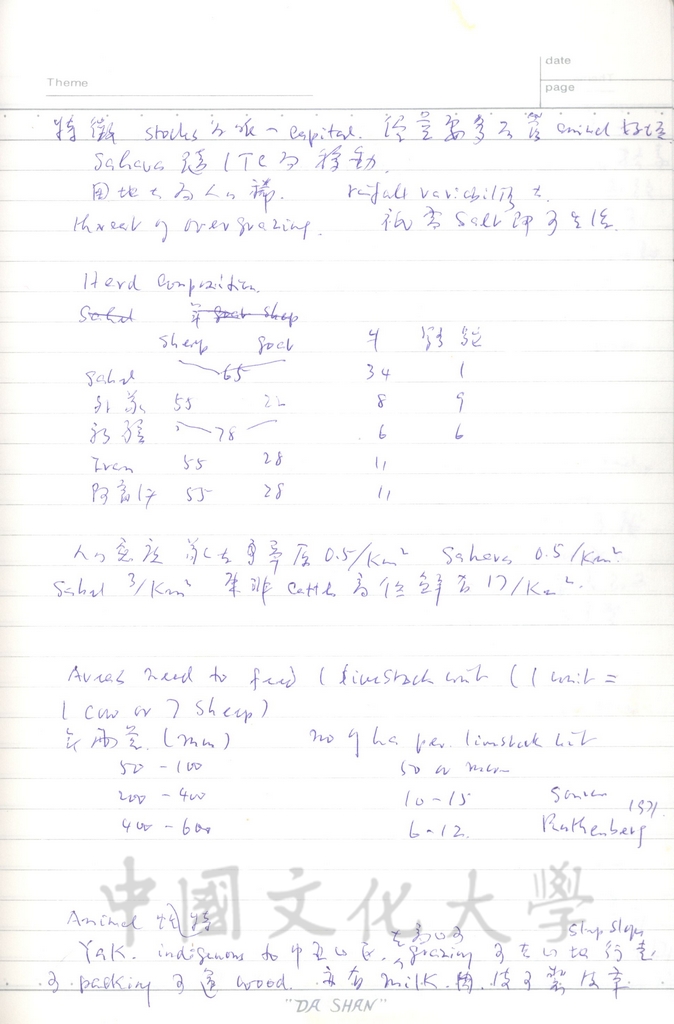 date
Theme
page
特徵 stocks 為唯一 capital. animal
Sahara 隨 ITC 而移動.
用地大而人口稀. rainfall variability 大.
threat of overgrazing. 祇需 salt 即可生活.
Herd Composition.
Sahel 羊 goat Shep
Sheep goat 牛 駱駝
Sahel 65 34 1
外蒙 55 22 8 9
新疆 78 6 6
Iran 55 28 11
阿富汗 55 28 11
人口密度 0.5/Km² Sahara 0.5/Km².
Sahel 3/Km² 東非 cattle 17/Km².
Areas need to feed 1 livestock unit (1 unit =
1 cow or 7 sheep)
年雨量. (mm) no of ha per. livestock unit
50 - 100 50 or more
200 - 400 10 - 15
400 - 600 6 - 12. Ruthenberg 1971.
中國文化大學
Animal
Yak. indigenous to grazing 可在 steep slope 行走
可 packing 可 wood. milk. 肉. 皮 皮革.
"DA SHAN"